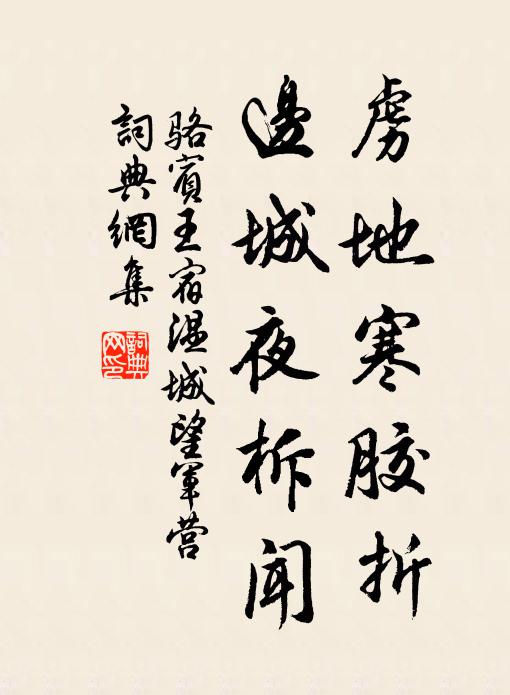 虜地寒膠折
邊城夜柝聞
駱賓王宿溫城望軍營
詞典網集
詞典
网印